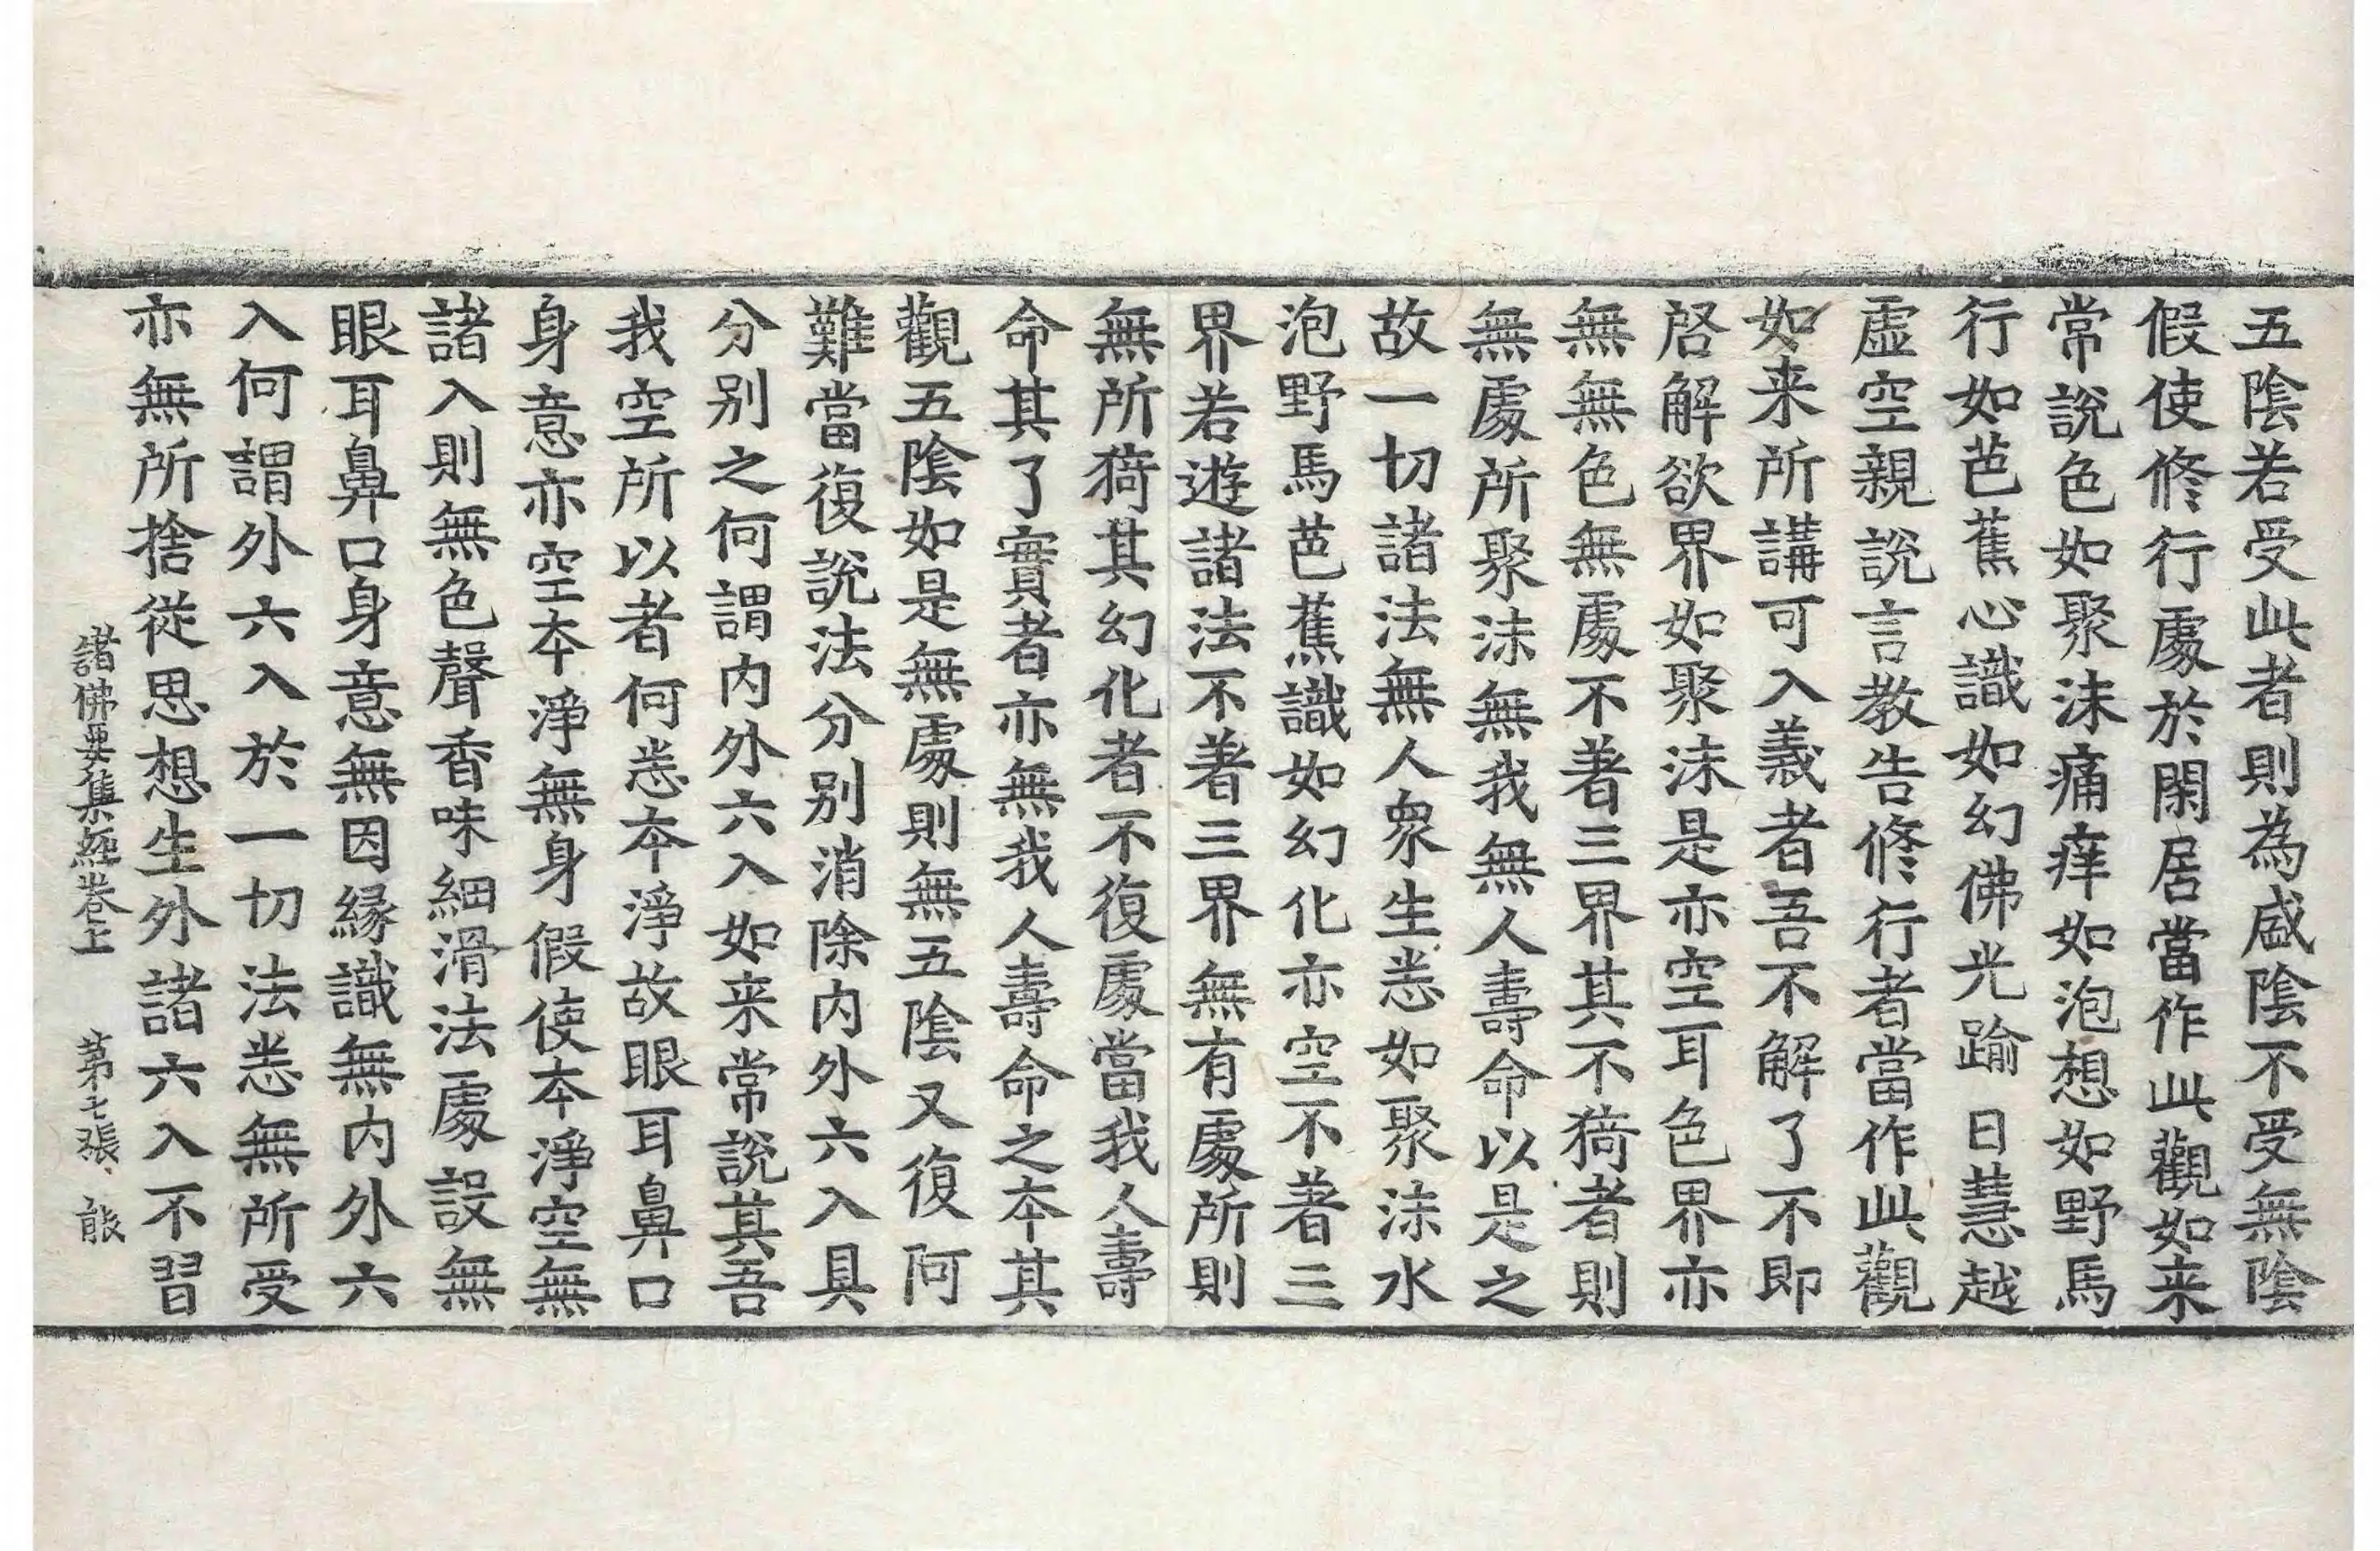 五陰若受此者則為盛陰不受無陰
假使修行處於閑居當作此觀如来
常說色如聚沫痛痒如泡想如野馬
行如芭蕉心識如幻佛光踰日慧越
虛空親說言教告修行者當作此觀
如来所講可入義者吾不解了不即
啓解欲界如聚沫是亦空耳色界亦
無無色無處不著三界其不猗者則
無處所聚沫無我無人壽命以是之
故一切諸法無人衆生悉如聚沫水
泡野馬芭蕉識如幻化亦空不著三
界若遊諸法不著三界無有處所則
無所猗其幻化者不復處當我人壽
命其了實者亦無我人壽命之本其
觀五陰如是無處則無五陰又復阿
難當復說法分別消除內外六入具
分別之何謂內外六入如来常說其吾
我空所以者何悉本淨故眼耳鼻口
身意亦空本淨無身假使本淨空無
諸入則無色聲香味細滑法處設無
眼耳鼻口身意無因緣識無內外六
入何謂外六入於一切法悉無所受
亦無所捨從思想生外諸六入不習
諸佛要集經卷上 第七張 能